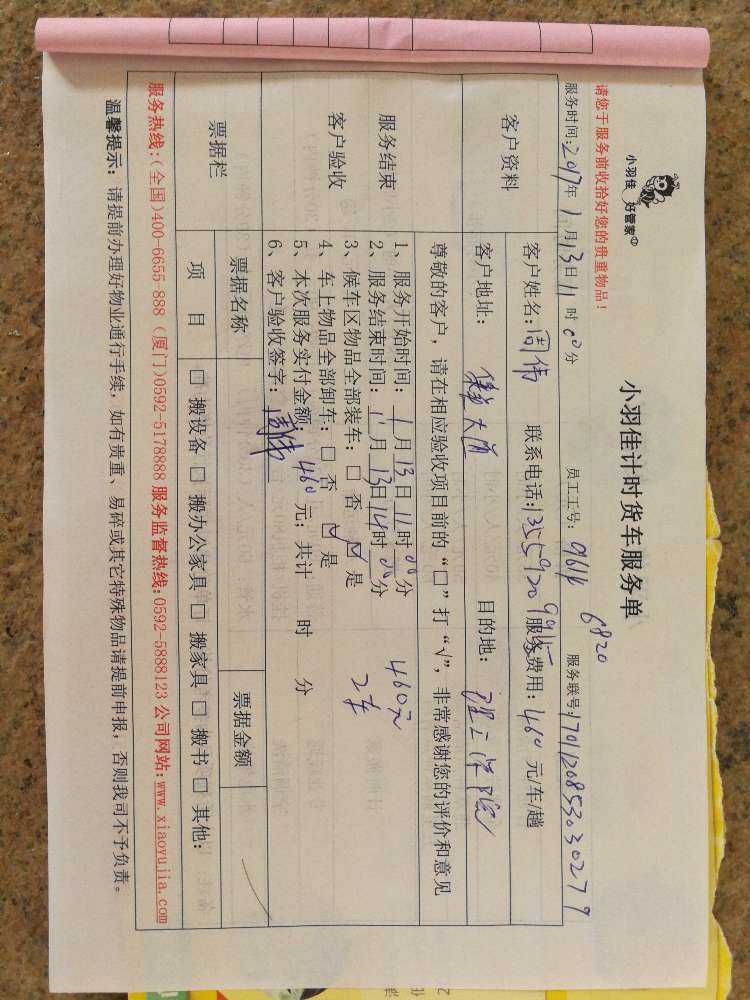 小羽佳 好管家
小羽佳计时货车服务单
请您于服务前收拾好您的贵重物品！
员工工号：9614 6820
服务时间：2017年1月13日11时00分
服务联号：1701120853030279
客户资料
客户姓名：周伟 联系电话：13559209915 服务费用：460元/车/趟
客户地址：集美大道 目的地：理工学院
服务结束
客户验收
尊敬的客户，请在相应验收项目前的“□”打“√”，非常感谢您的评价和意见
1、服务开始时间：1月13日11时00分
2、服务结束时间：1月13日14时00分
460元
3、候车区物品全部装车：□否 ☑是
2车
4、车上物品全部卸车：□否 ☑是
5、本次服务实付金额：460元；共计 时 分
6、客户验收签字：周伟
票据栏
票据名称 票据金额
项目 □搬设备 □搬办公家具 □搬家具 □搬书 □其他：
服务热线：(全国)400-6655-888 (厦门)0592-5178888 服务监督热线：0592-5888123 公司网站：www.xiaoyujia.com
温馨提示：请提前办理好物业通行手续，如有贵重、易碎或其它特殊物品请提前申报，否则我司不予负责。